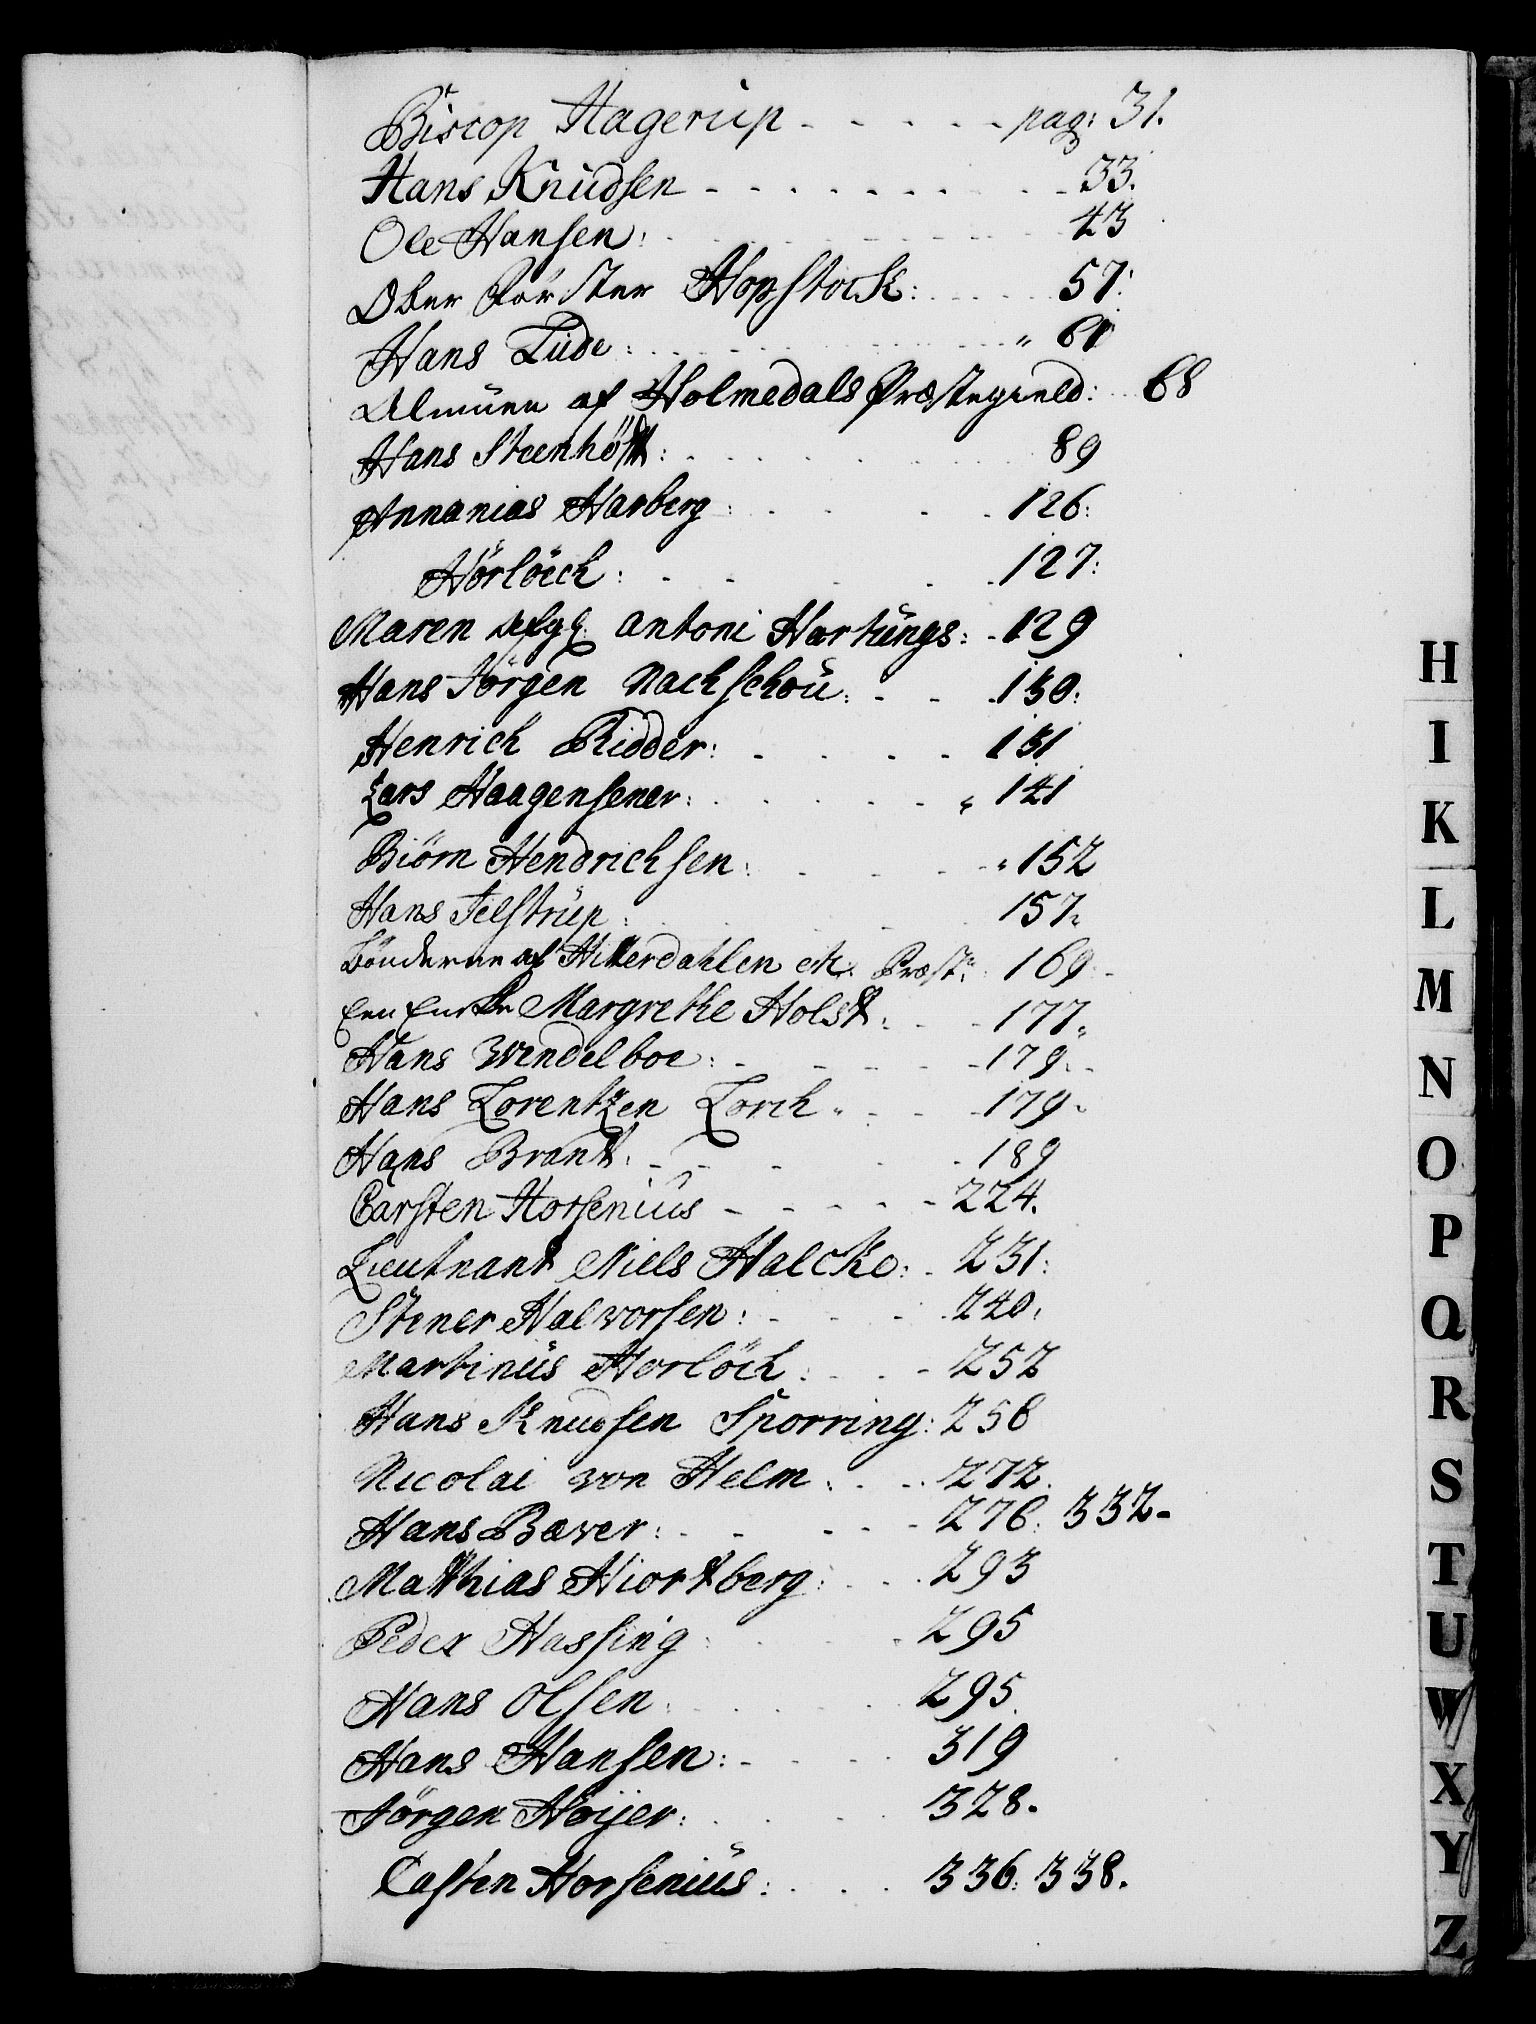 Biscop Hagerup - - - - - pag: 31.
Hans Knudsen - - - - - - - - - 33.
Ole Hansen: - - - - - - - 43
Ober Förster Hopstock: - - - 57:
Hans Tüde: - - - - - - - " 61
Almuen af Holmedals Præstegield: - 68
Hans Steenhöfft: - - - - - - 89
Annanias Harberg: - - - - 126:
Hörlöick: - - - - - 127:
Maren afgl: Antoni Hartüngs: - 129
Hans Jörgen Nachschoü: - - - 130:
Henrich Ridder: - - - - 131
Lars Haagensener: - - - - " 141
Biörn Hendrichsen: - - - - " 152
Hans Felstrüp: - - - - 157.
Bönderne af Hitterdahlen etc. Præst: 169 -
Een Encke Margrethe Holst: - - 177.
Hans Wendelboe: - - - - - 179. -
Hans Lorentzen Lorch - - - 179.
Hans Brant: - - - - - 189
Carsten Horsenius - - - - - 224.
Lieutnant Niels Halcke: - 231:
Stener Halvorsen: - - - - 240.
Martinüs Horlöck: - - - 252
Hans Knudsen Sporring: 256
Nicolai von Helm: - - - 272.
Hans Bæver: - - - - - 276: 332 -
Matthias Hiortberg: - - - 293
Peder Hassing: - - - - 295
Hans Olsen: - - - - - 295.
Hans Hansen: - - - - - 319
Jörgen Höijer: - - - - 328.
Casten Horsenius: - - - - 336: 338.
H
I
K
L
M
N
O
P
Q
R
S
T
U
W
X
Y
Z